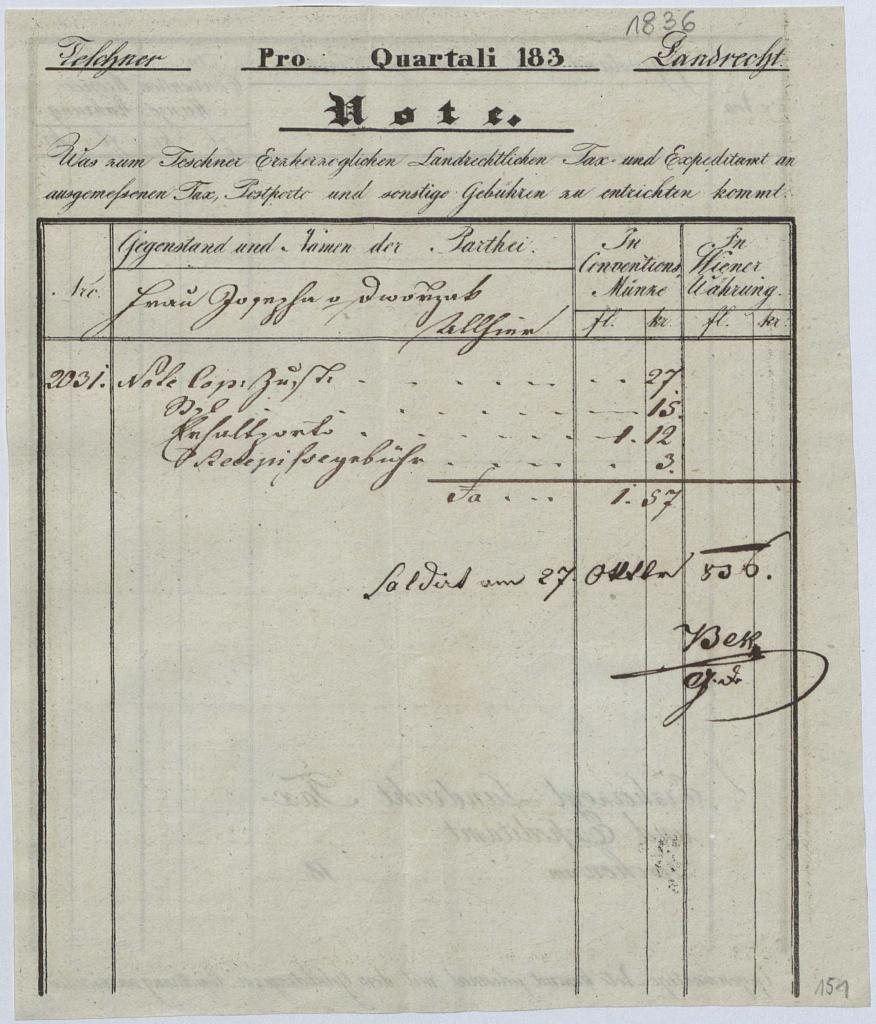 1836
Teschner Pro Quartali 183 Landrecht
Note.
Was zum Teschner Erzherzoglichen Landrechtlichen Tax- und Expeditamt an
ausgemeßenen Tax, Postporto und sonstige Gebühren zu entrichten kommt.
Nro. Gegenstand und Namen der Parthei. In Conventions Münze In Wiener Währung.
Frau Josepha v Dworzak
Allhier
fl. kr. fl. kr.
2031. Note Cop: Zust. 27
15.
porto 1. 12
Recepissegebühr 3.
Sa 1. 57
Saldirt am 27 Oktbr 836.
Bek
154